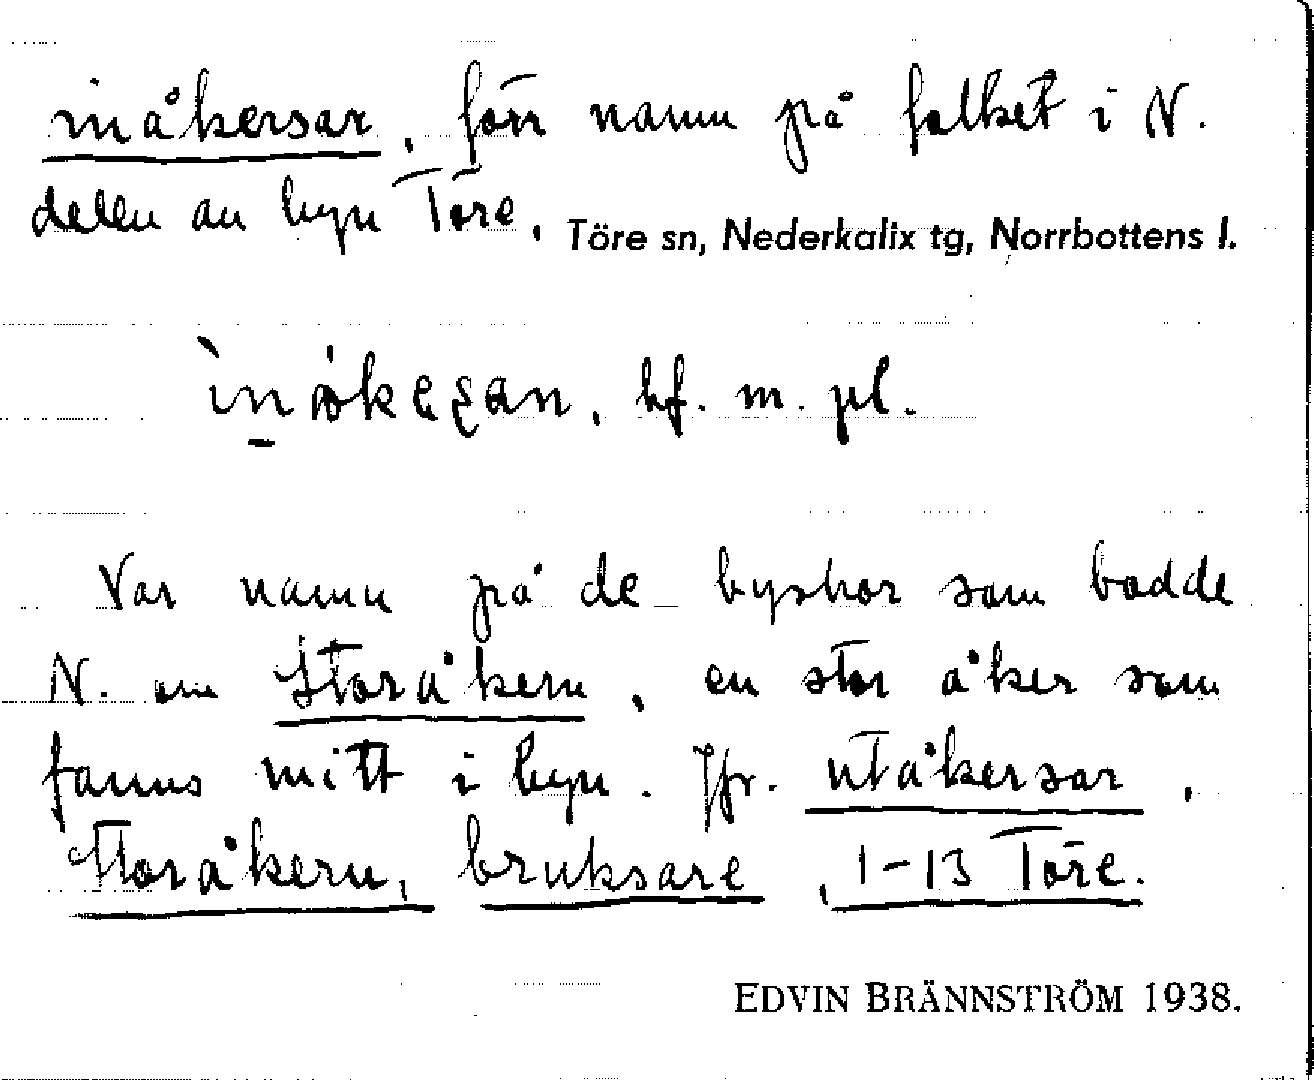 inåkersar, förr namn på folket i N.
delen av byn Töre, Töre sn, Nederkalix tg, Norrbottens l.
bf. m. pl.
Var namn på de bysbor som bodde
N. om Storåkern, en stor åker som
fanns mitt i byn. Jfr. utåkersar,
Storåkern, bruksare, 1-13 Töre.
EDVIN BRÄNNSTRÖM 1938.